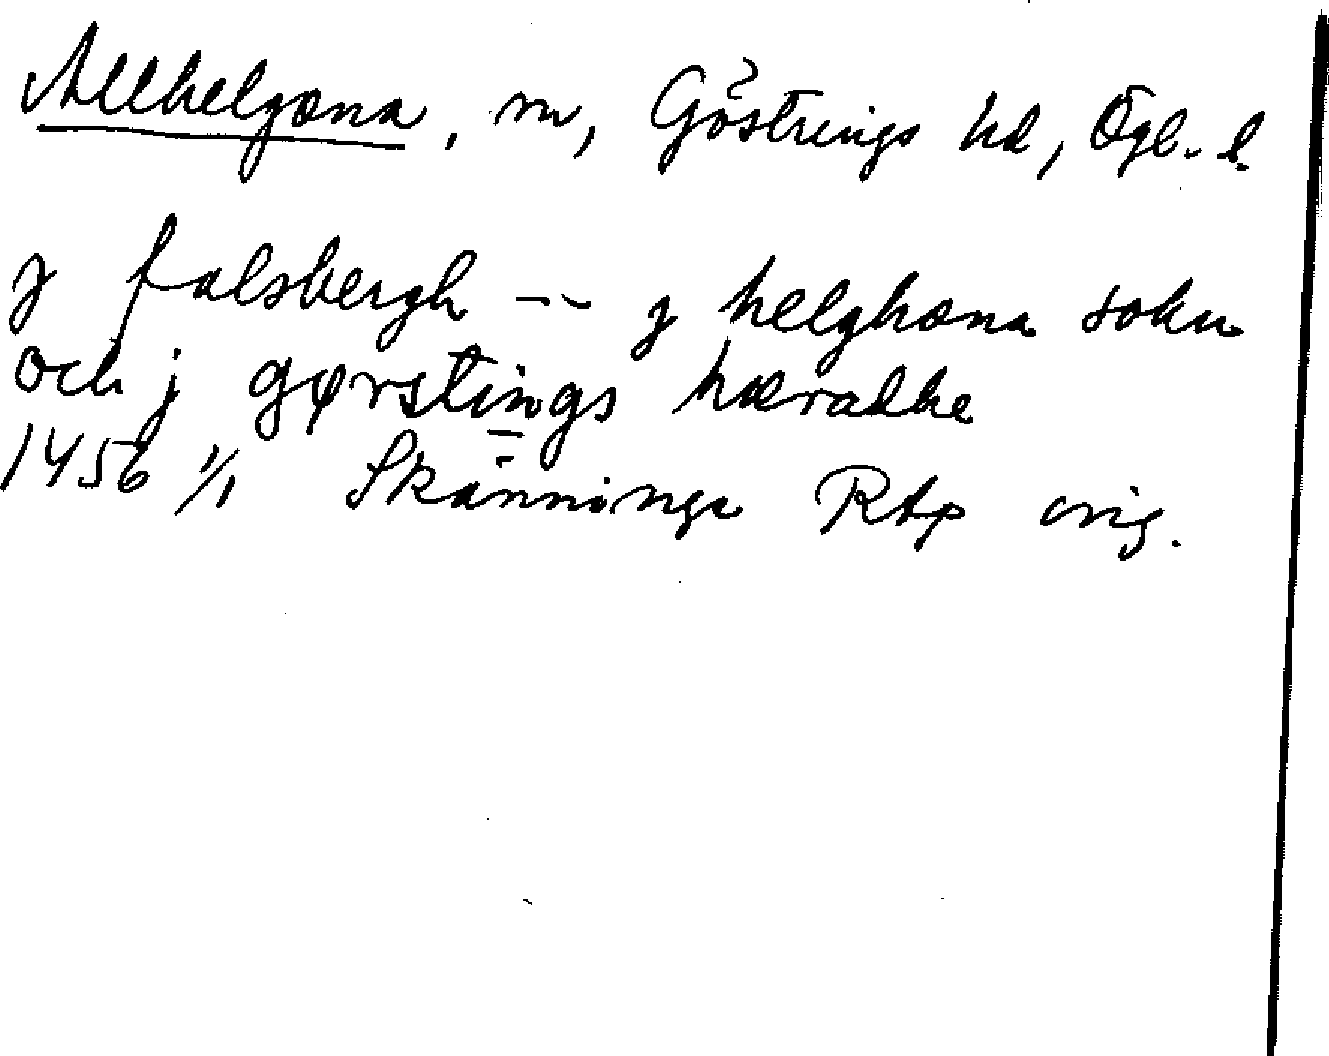 Allhelgona, sn, Göstrings hd, Ögl. l.
j falsbergh -- j helghona sokn
och j gørstings hæradhe
1456 1/1 Skänninge Rap orig.